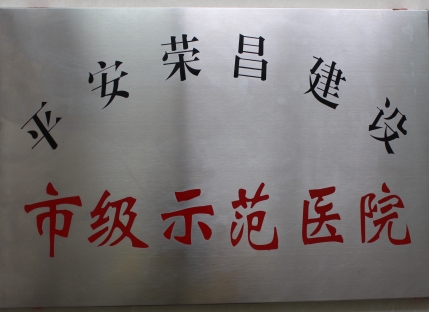 平安荣昌建设
市级示范医院